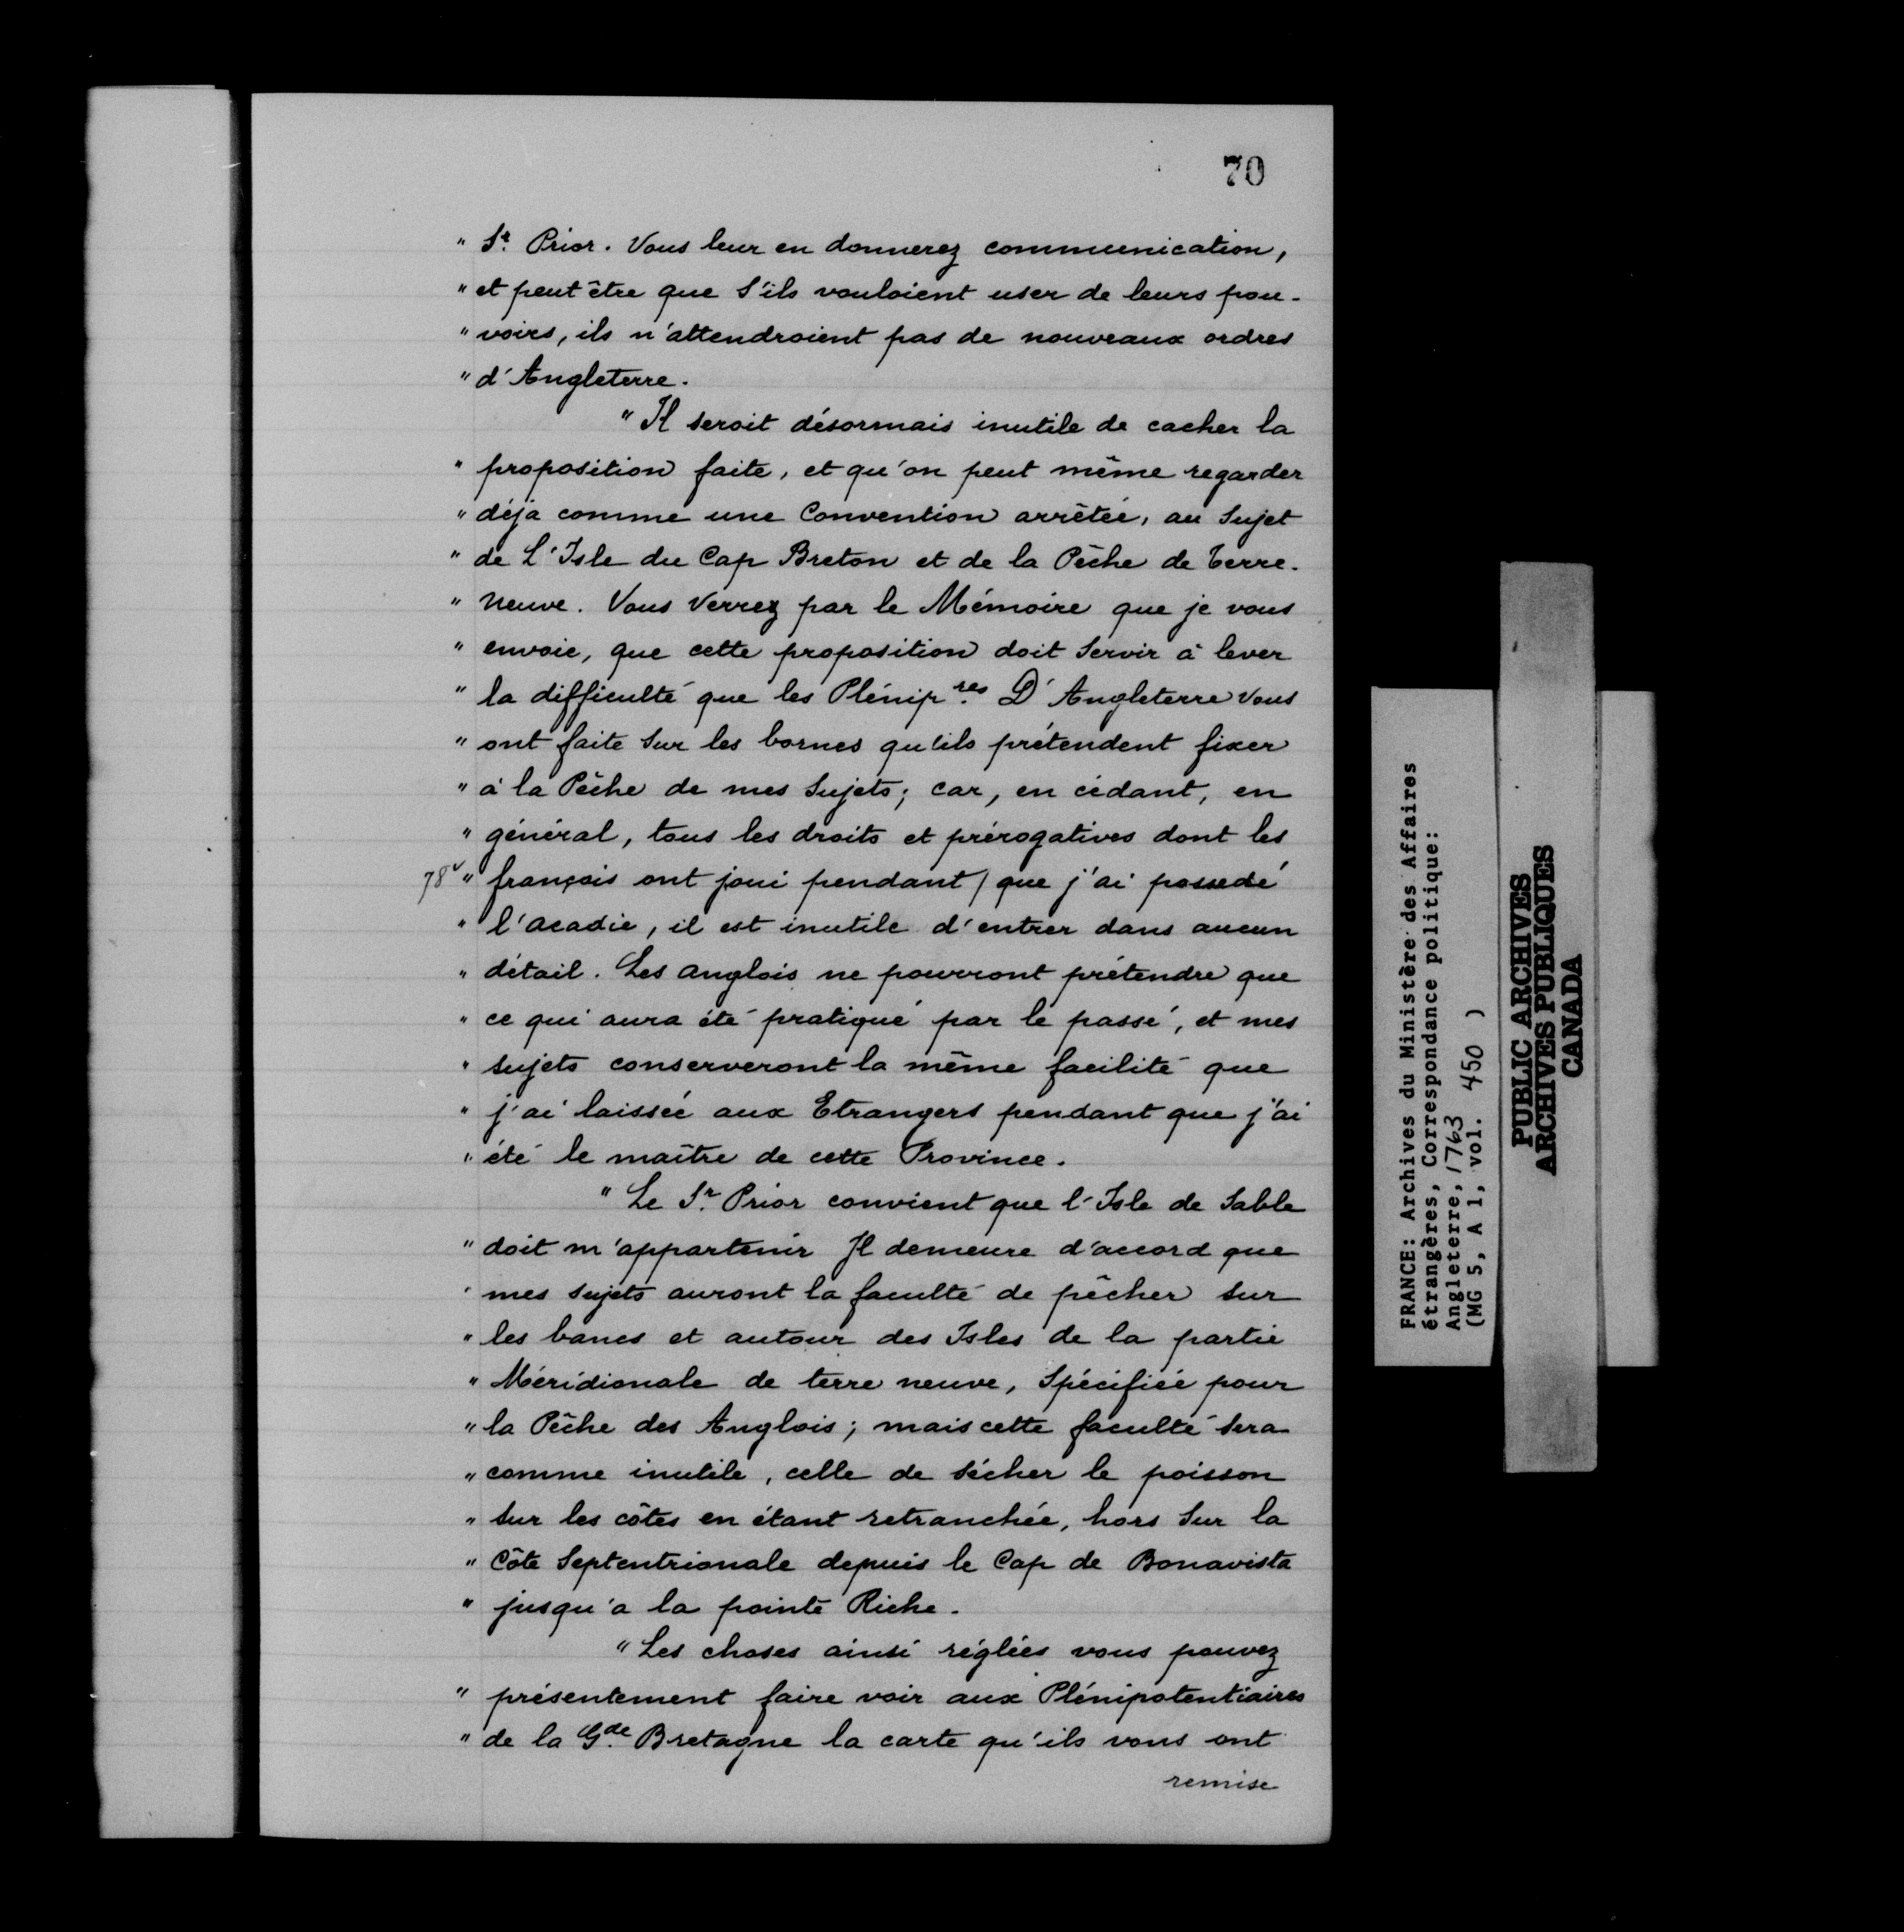 70
" Sr. Prior. Vous leur en donnerez communication,
" et peut être que s'ils vouloient user de leurs pou-
" voirs, ils n'attendroient pas de nouveaux ordres
" d'Angleterre.
" Il seroit désormais inutile de cacher la
" proposition faite, et qu'on peut même regarder
" déjà comme une Convention arrêtée, au Sujet
" de L'Isle du Cap Breton et de la Pêche de Terre-
" Neuve. Vous Verrez par le Mémoire que je vous
" envoie, que cette proposition doit Servir à lever
" la difficulté que les Plénip.res D'Angleterre Vous
" ont faite Sur les bornes qu'ils prétendent fixer
" à la Pêche de mes Sujets; car, en cédant, en
" général, tous les droits et prérogatives dont les
78v " françois ont joui pendant / que j'ai possedé
" l'acadie, il est inutile d'entrer dans aucun
" détail. Les anglois ne pourront prétendre que
" ce qui aura été pratiqué par le passé, et mes
" sujets conserveront la même facilité que
" j'ai laissée aux Etrangers pendant que j'ai
" été le maître de cette Province.
" Le Sr. Prior convient que l'Isle de Sable
" doit m'appartenir Il demeure d'accord que
" mes sujets auront la faculté de pêcher sur
" les bancs et autour des Isles de la partie
" Méridionale de terre neuve, Spécifiée pour
" la Pêche des Anglois; mais cette faculté sera
" comme inutile, celle de sécher le poisson
" sur les côtes en étant retranchée, hors Sur la
" Côte Septentrionale depuis le Cap de Bonavista
" jusqu'a la pointe Riche.
" Les choses ainsi réglées vous pouvez
" présentement faire voir aux Plénipotentiaires
" de la G.de Bretagne la carte qu'ils vous ont
remise
FRANCE: Archives du Ministère des Affaires
étrangères, Correspondance politique:
Angleterre, 1763
(MG 5, A 1, vol. 450 )
PUBLIC ARCHIVES
ARCHIVES PUBLIQUES
CANADA